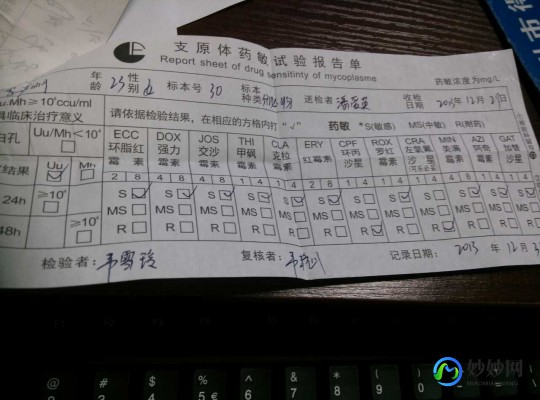 支原体药敏试验报告单
Report sheet of drug sensitinty of mycoplasme
年龄 23 性别 女 标本号 30 标本种类 分泌物 送检者 收检日期 2013年12月2日
药敏浓度为mg/L
Uu.Mh≥10⁴ccu/ml
临床治疗意义
请依据检验结果，在相应的方格内打"√" 药敏 S(敏感) MS(中敏) R(耐药)
Uu/Mh<10⁴
ECC DOX JOS THI CLA ERY CPF ROX CRA MIN AZI GAT
环脂红霉素 强力霉素 交沙霉素 甲砜霉素 克拉霉素 红霉素 环丙沙星 罗红霉素 左氧氟沙星 美满霉素 阿奇霉素 加替沙星
结果 Uu Mh
2 8 4 8 4 8 1 4 1 4 2 8 1 4 1 4 1 4
24h ≥10⁴
S S S S S S S S S S S S
MS MS MS MS MS MS MS MS MS MS MS MS
48h ≥10⁴
R R R R R R R R R R R R
检验者： 复核者： 记录日期： 2013年12月
@ # $ % & * ( )
2 3 4 5 € 6 7 8 9 0
妙妙网